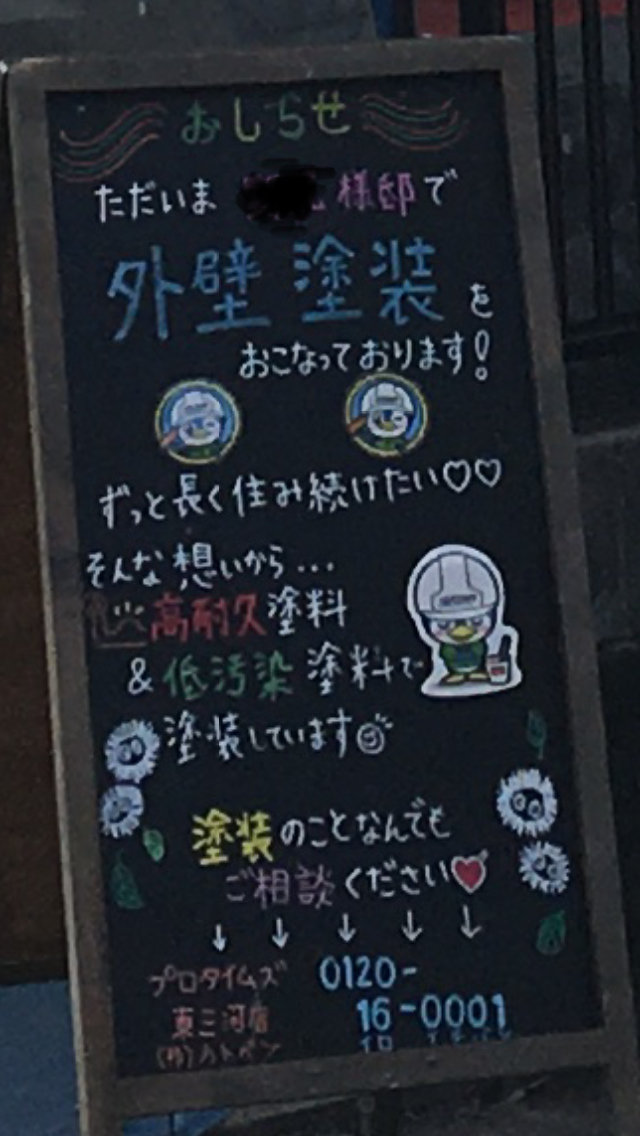 おしらせ
ただいま 様邸で
外壁塗装を
おこなっております!
ずっと長く住み続けたい♡♡
そんな想いから...
高耐久塗料
&低汚染塗料で
塗装しています
塗装のことなんでも
ご相談ください
↓ ↓ ↓ ↓ ↓
プロタイムズ 0120-
東三河店 16-0001